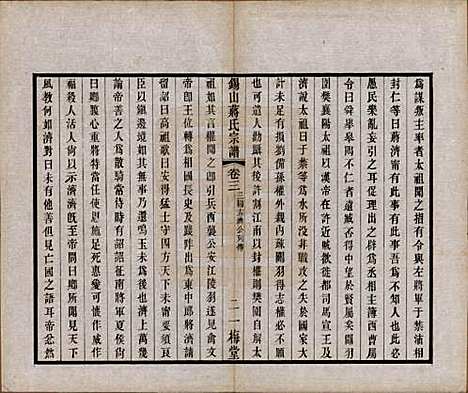 爲謀叛主率者太祖聞之指前令與左將軍于禁沛相
封仁等曰蔣濟甯有此事有此事吾爲不知人也此必
愚民樂亂妄引之耳促理出之辟爲丞相主簿西曹屬
令曰舜舉皋陶不仁者遠臧否得中望於賢屬矣關羽
圍樊襄陽太祖以漢帝在許近賊欲徙都司馬宣王及
濟說太祖曰于禁等爲水所沒非戰攻之失於國家大
計未足有損劉備孫權外親內疏關羽得志權必不願
也可遣人勸躡其後許割江南以封權則樊圍自解太
祖如其言權聞之即引兵西襲公安江陵羽遂見禽文
帝即王位轉爲相國長史及踐阼出爲東中郎將濟請
留詔曰高祖歌曰安得猛士守四方天下未甯要須良
臣以鎮邊境如其無事乃還鳴玉未爲後也濟上萬機
論帝善之入爲散騎常侍時有詔詔征南將軍夏侯尚
曰卿腹心重將特當任使恩施足死惠愛可懷作威作
福殺人活人尚以示濟濟既至帝問曰卿所聞見天下
風教何如濟對曰未有他善但見亡國之語耳帝忿然
錫山蔣氏宗譜
卷三
二
一梅堂